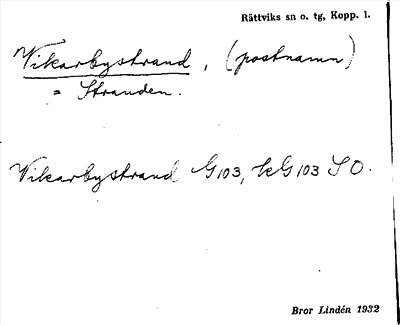 Rättviks sn o. tg, Kopp. l.
Vikarbystrand, (postnamn)
= Stranden.
Vikarbystrand G103, kG103 SO.
Bror Lindén 1932